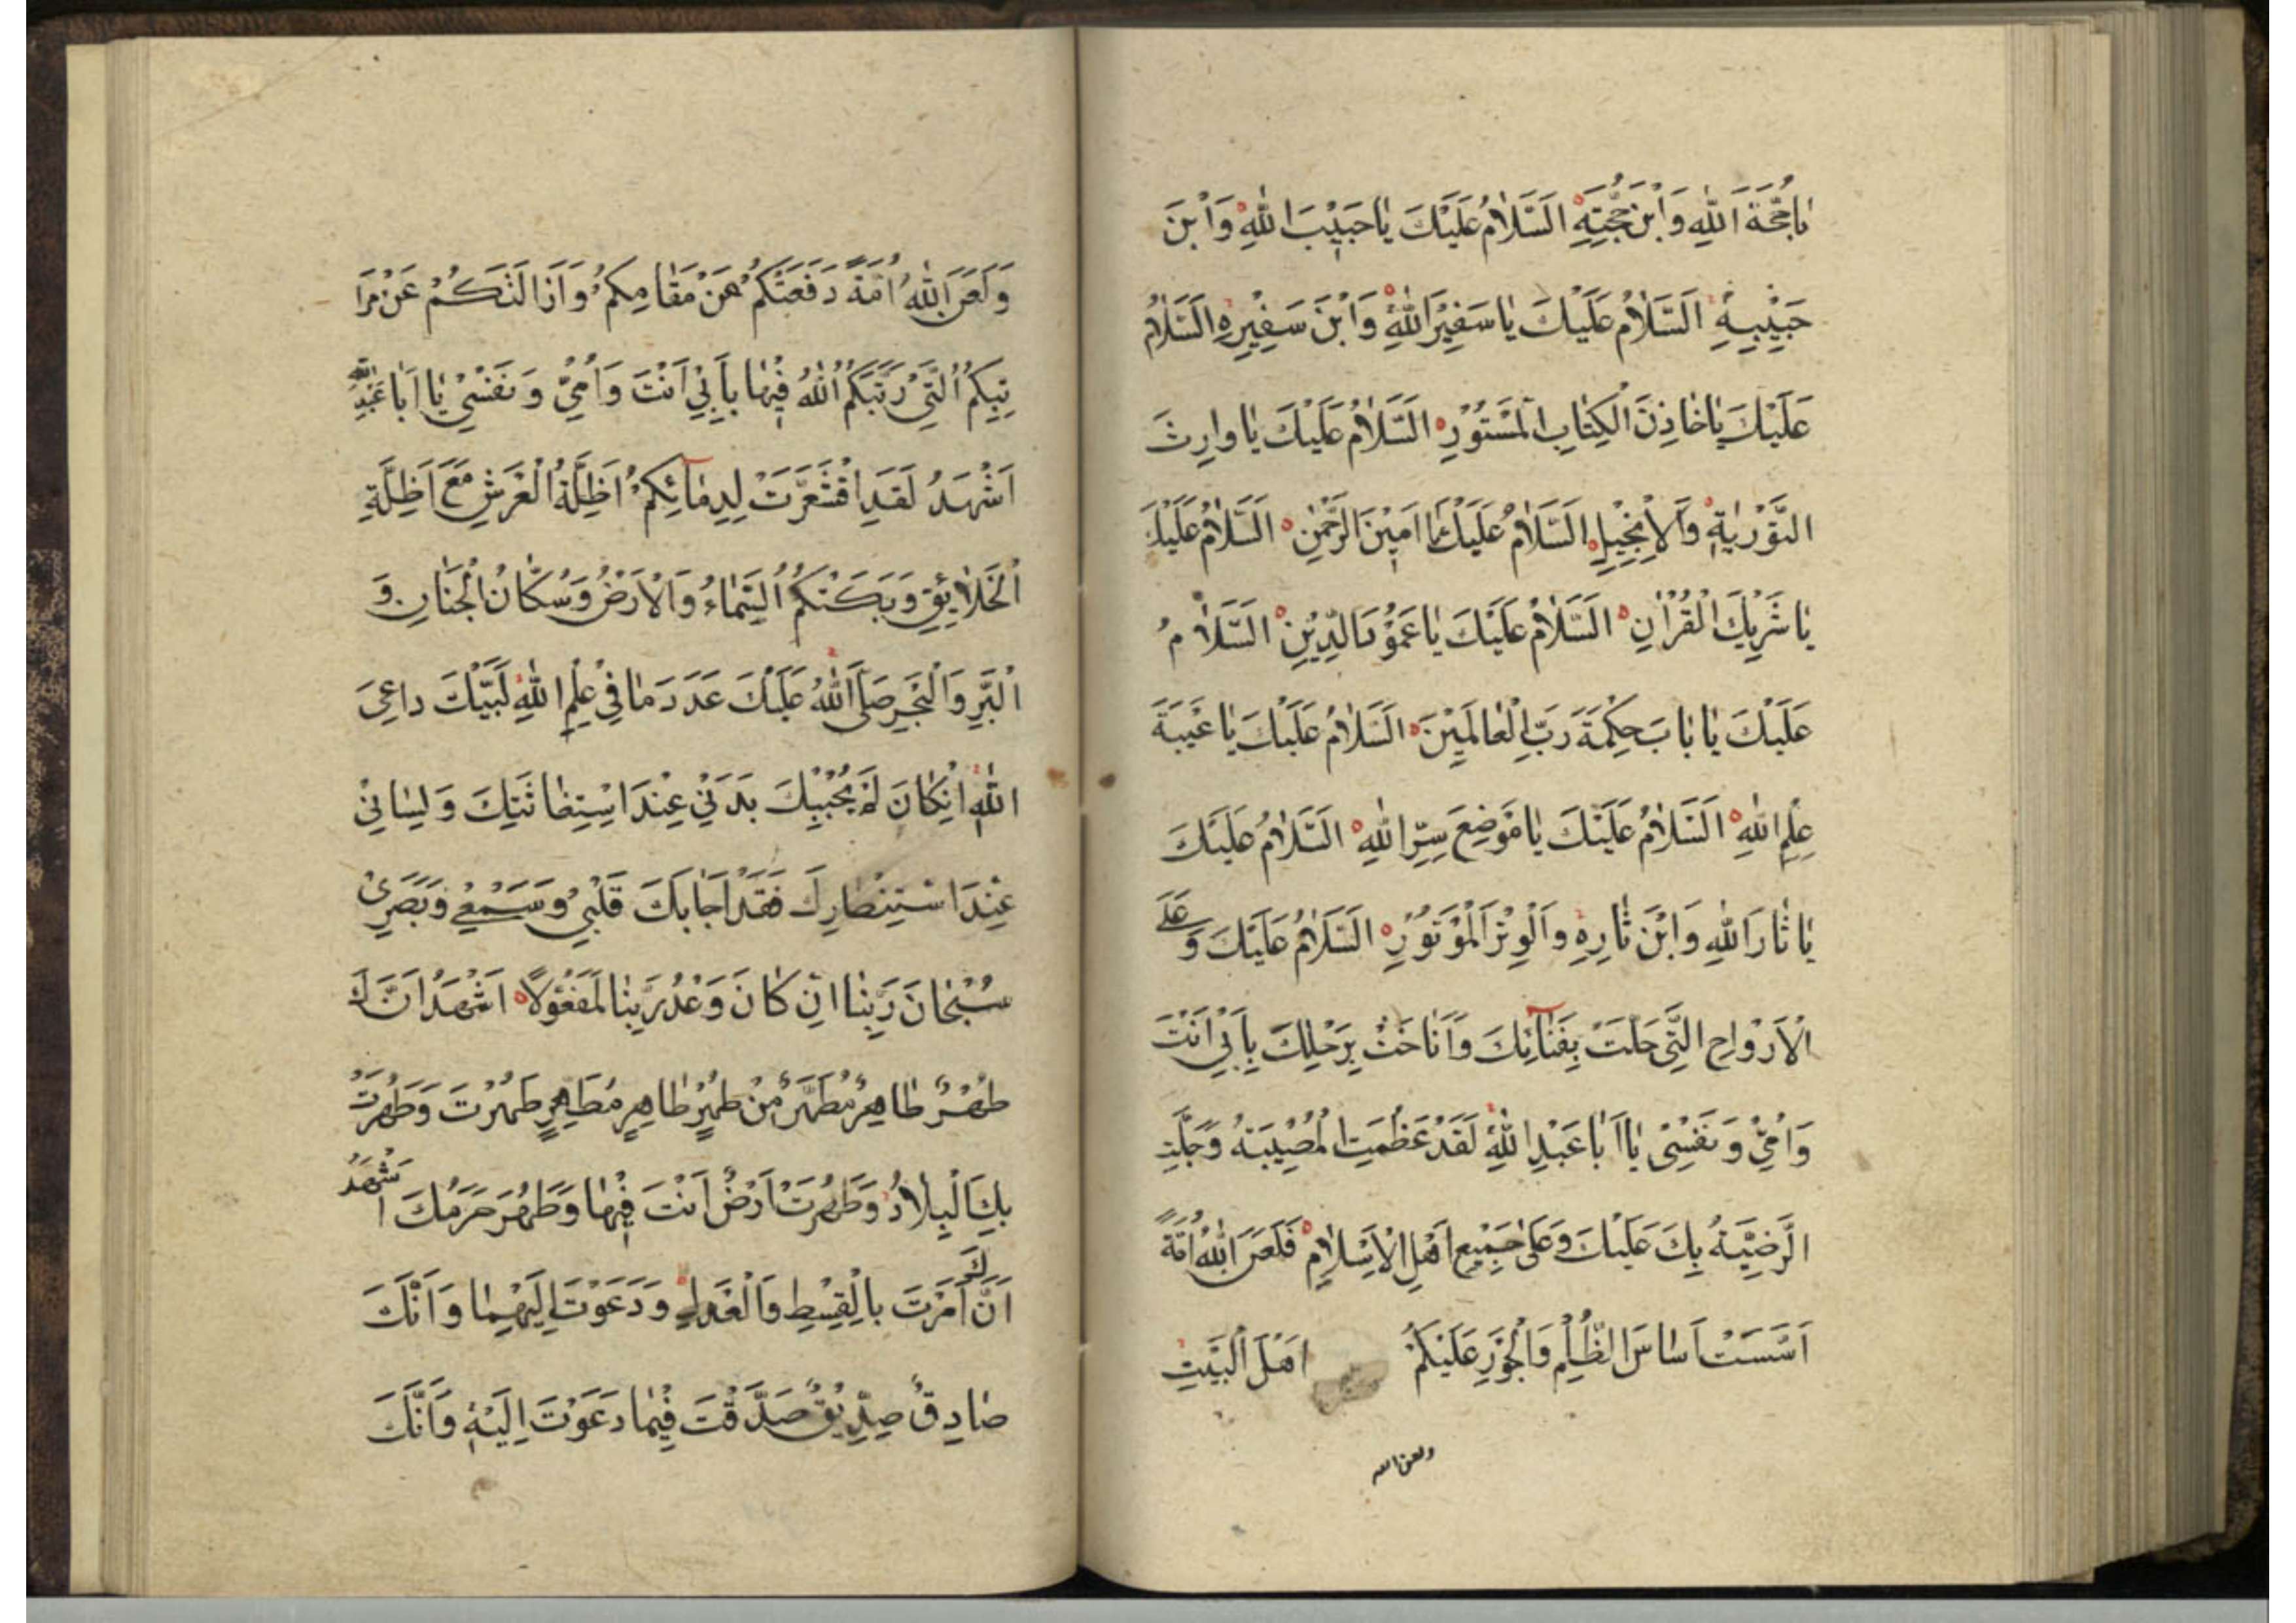 يَا حُجَّةَ اللّٰهِ وَابْنَ حُجَّتِهِ اَلسَّلَامُ عَلَيْكَ يَا حَبِيْبَ اللّٰهِ وَابْنَ
حَبِيْبِهِ اَلسَّلَامُ عَلَيْكَ يَا سَفِيْرَ اللّٰهِ وَابْنَ سَفِيْرِهِ اَلسَّلَامُ
عَلَيْكَ يَا خَازِنَ الْكِتَابِ الْمَسْتُوْرِ اَلسَّلَامُ عَلَيْكَ يَا وَارِثَ
التَّوْرٰيةِ وَالْاِنْجِيْلِ اَلسَّلَامُ عَلَيْكَ يَا اَمِيْنَ الرَّحْمٰنِ اَلسَّلَامُ عَلَيْكَ
يَا شَرِيْكَ الْقُرْاٰنِ اَلسَّلَامُ عَلَيْكَ يَا عَمُوْدَ الدِّيْنِ اَلسَّلَامُ
عَلَيْكَ يَا بَابَ حِكْمَةَ رَبِّ الْعَالَمِيْنَ اَلسَّلَامُ عَلَيْكَ يَا عَيْبَةَ
عِلْمِ اللّٰهِ اَلسَّلَامُ عَلَيْكَ يَا مَوْضِعَ سِرِّ اللّٰهِ اَلسَّلَامُ عَلَيْكَ
يَا ثَارَ اللّٰهِ وَابْنَ ثَارِهِ وَالْوِتْرَ الْمَوْتُوْرِ اَلسَّلَامُ عَلَيْكَ وَعَلَى
الْاَرْوَاحِ الَّتِيْ حَلَّتْ بِفِنَائِكَ وَاَنَاخَتْ بِرَحْلِكَ بِاَبِيْ اَنْتَ
وَاُمِّيْ وَنَفْسِيْ يَا اَبَا عَبْدِ اللّٰهِ لَقَدْ عَظُمَتِ الْمُصِيْبَةُ وَجَلَّتِ
الرَّزِيَّةُ بِكَ عَلَيْكَ وَعَلٰى جَمِيْعِ اَهْلِ الْاِسْلَامِ فَلَعَنَ اللّٰهُ اُمَّةً
اَسَّسَتْ اَسَاسَ الظُّلْمِ وَالْجَوْرِ عَلَيْكُمْ اَهْلَ الْبَيْتِ
ولعن الله
وَلَعَنَ اللّٰهُ اُمَّةً دَفَعَتْكُمْ عَنْ مَقَامِكُمْ وَاَزَالَتْكُمْ عَنْ مَرَا
تِبِكُمُ الَّتِيْ رَتَّبَكُمُ اللّٰهُ فِيْهَا بِاَبِيْ اَنْتَ وَاُمِّيْ وَنَفْسِيْ يَا اَبَا عَبْدِ اللّٰهِ
اَشْهَدُ لَقَدِ اقْشَعَرَّتْ لِدِمَائِكُمْ اَظِلَّةُ الْعَرْشِ مَعَ اَظِلَّةِ
الْخَلَائِقِ وَبَكَتْكُمُ السَّمَاءُ وَالْاَرْضُ وَسُكَّانُ الْجِنَانِ وَ
الْبَرِّ وَالْبَحْرِ صَلَّى اللّٰهُ عَلَيْكَ عَدَدَ مَا فِيْ عِلْمِ اللّٰهِ لَبَّيْكَ دَاعِيَ
اللّٰهِ اِنْ كَانَ لَمْ يُجِبْكَ بَدَنِيْ عِنْدَ اسْتِغَاثَتِكَ وَلِسَانِيْ
عِنْدَ اسْتِنْصَارِكَ فَقَدْ اَجَابَكَ قَلْبِيْ وَسَمْعِيْ وَبَصَرِيْ
سُبْحَانَ رَبِّنَا اِنْ كَانَ وَعْدُ رَبِّنَا لَمَفْعُوْلًا اَشْهَدُ اَنَّكَ
طُهْرٌ طَاهِرٌ مُطَهَّرٌ مِنْ طُهْرٍ طَاهِرٍ مُطَهَّرٍ طَهُرْتَ وَطَهُرَتْ
بِكَ الْبِلَادُ وَطَهُرَتْ اَرْضٌ اَنْتَ فِيْهَا وَطَهُرَ حَرَمُكَ اَشْهَدُ
اَنَّكَ اَمَرْتَ بِالْقِسْطِ وَالْعَدْلِ وَدَعَوْتَ اِلَيْهِمَا وَاَنَّكَ
صَادِقٌ صِدِّيْقٌ صَدَّقْتَ فِيْمَا دَعَوْتَ اِلَيْهِ وَاَنَّكَ